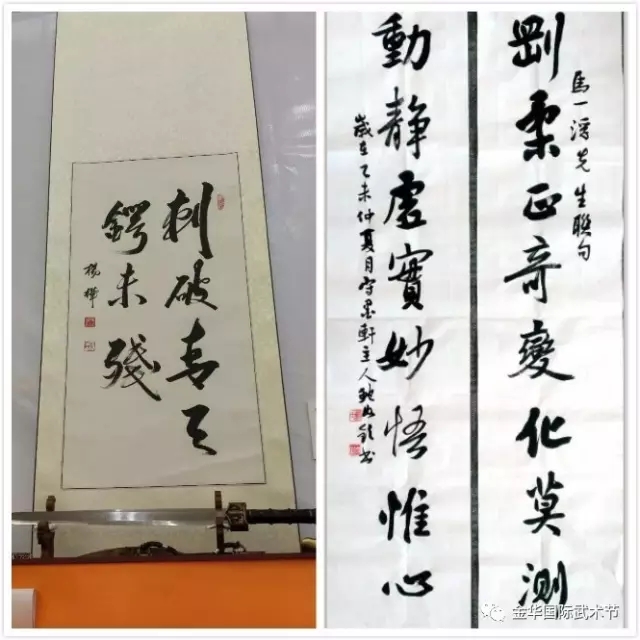 刺破青天
鍔未殘
楊
剛柔正奇變化莫測
馬一浮先生聯句
動靜虛實妙悟惟心
歲在乙未仲夏月守墨軒主人書
金华国际武术节